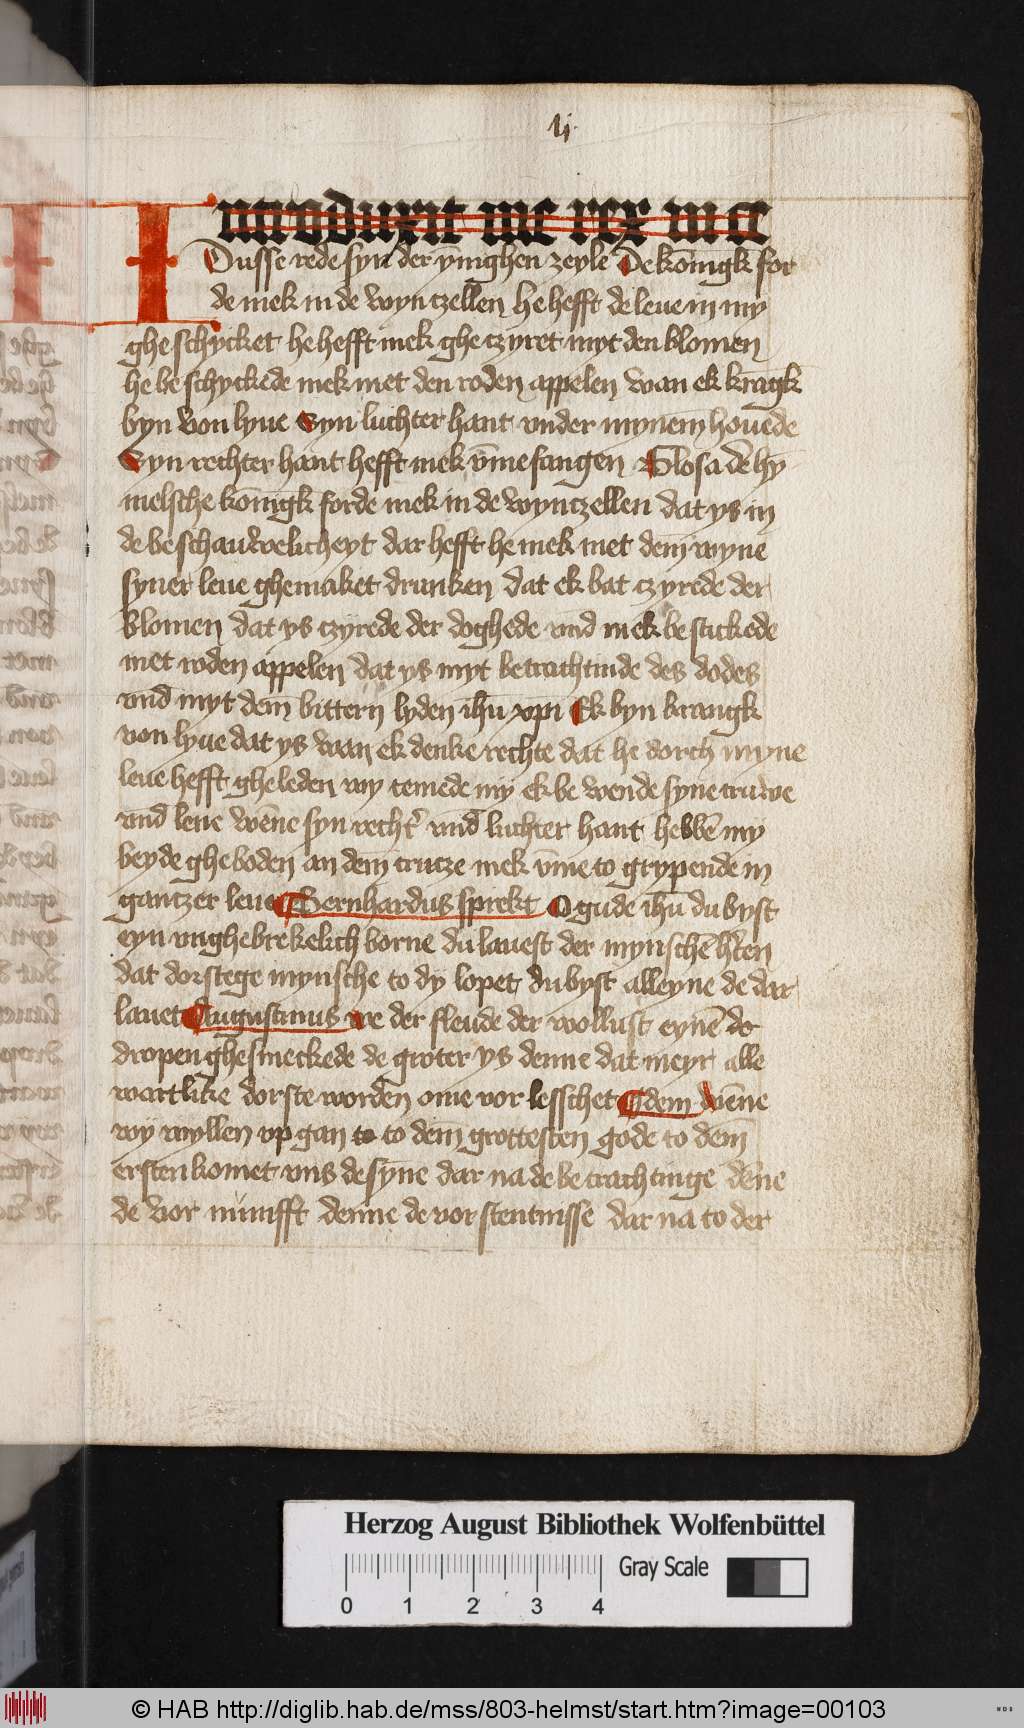 lj
Introduxit me rex in ce
Dusse rede syn der ynnighen zeyle De konnigk for
de mek in de wyntzellen he hefft de leue in my
ghe schycket he hefft mek ghe czyret myt den blomen
he be schyckede mek met den roden appelen wan ek krangk
byn von lyue Syn luchter hant vnder mynem houede
Syn rechter hant hefft mek vm̄e fangen Glosa de hy
melsche konnigk forde mek in de wyntzellen dat ys in
de be schauwelicheyt dar hefft he mek met dem wyne
syner leue ghemaket drunken dat ek bat czyrede der
blomen dat ys czyrede der doghede vnd mek be stickede
met roden appelen dat ys myt betrachtinde des dodes
vnd myt dem bittern lyden ih̄u xp̄i Ek byn krangk
von lyue dat ys waan ek denke rechte dat he dorch myne
leue hefft gheleden wy temede my ek be wende syne truwe
vnd leue wēne syn recht' vnd luchter hant hebbē my
beyde gheboden an dem crutze mek vm̄e to grypende in
gantzer leue Bernhardus sprekt O gude ih̄u du byst
eyn vnghebrekelich borne du lauest der mynschē h'ten
dat dorstege mynsche to dy lopet du byst alleyne de dar
lauet Augustinus we der fleude der wollust eynē do
dropen ghesmeckede de groter ys denne dat meyr alle
wartlike dorste worden ome vor lesschet Idem wēne
wy wyllen vp gan to to dem grottesten gode to dem
ersten komet vns de syne dar na de be trachtinge dēne
de vor nunifft denne de vorstentnisse dar na to der
Herzog August Bibliothek Wolfenbüttel
Gray Scale
0 1 2 3 4
© HAB http://diglib.hab.de/mss/803-helmst/start.htm?image=00103